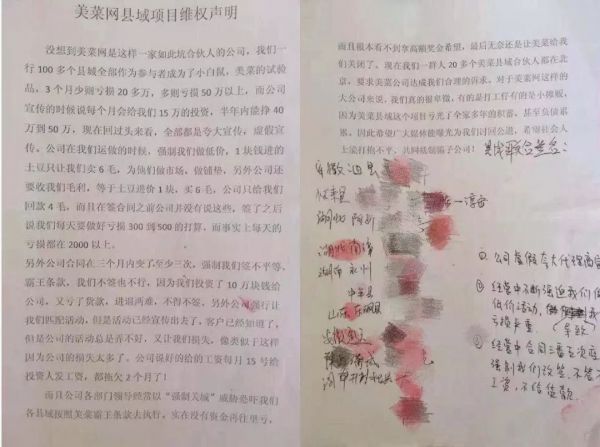 美菜网县域项目维权声明
没想到美菜网是这样一家如此坑合伙人的公司，我们一
行 100 多个县城全部作为参与者成为了小白鼠，美菜的试验
品，3 个月少则亏损 20 多万，多则亏损 50 万以上，而公司
宣传的时候说每个月会给我们 15 万的投资，半年内能挣 40
万到 50 万，现在回过头来看，全部都是夸大宣传，虚假宣
传。公司在我们运做的时候，强制我们做低价，1 块钱进的
土豆只让我们卖 6 毛，为他们做市场，做铺垫，另外公司还
要收我们毛利，等于土豆进价 1 块，买 6 毛，公司只给我们
回款 4 毛，而且在签合同之前公司并没有说这些，签了之后
说我们每天要做好亏损 300 到 500 的打算，而事实上每天的
亏损都在 2000 以上。
另外公司合同在三个月内变了至少三次，强制我们签不平等、
霸王条款，我们不签也不行，因为我们投资了 10 万块钱给
公司，又亏了货款，进退两难，不得不签，另外公司强行让
我们匹配活动，但是活动已经宣传出去了，客户已经知道了，
但是公司的活动总是弄不好，又让我们损失，像类似于这样
因为公司的损失太多了。公司说好的给的工资每月 15 号给
投资人发工资，都拖欠 2 个月了！
而且公司各部门领导经常以“强制关城”威胁恐吓我们
各县城按照美菜霸王条款去执行，实在没有资金再往里亏，
而且根本看不到拿高额奖金希望，最后无奈还是让美菜给我
们关闭了。现在我们一群人 20 多个美菜县城合伙人都在北
京，要求美菜公司达成我们合理的诉求。对于美菜网这样的
大公司来说，我们真的很卑微，有的是打工仔有的是小摊贩，
因为美菜县域这个项目亏光了全家多年的积蓄，甚至负债累
累，因此希望广大媒体能曝光为我们讨回公道，希望社会人
士能打抱不平，共同抵制骗子公司！
县域联合签名：
安徽
湖北
湖南 永州
山东 东明县
① 公司虚假夸大代理商
② 经营中不断强迫我们做
低价活动
亏损严重
③ 经营中合同
强制我们改签，不签不
工资，不给货款